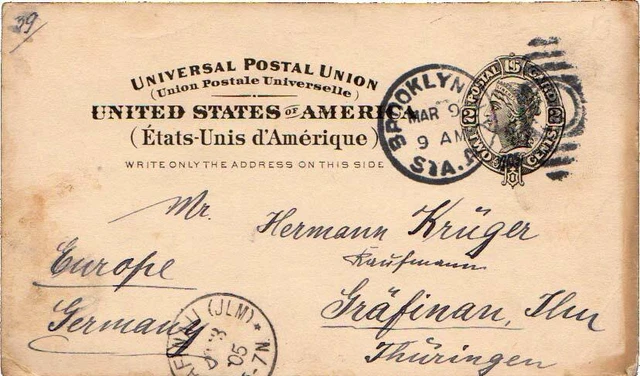 39
UNIVERSAL POSTAL UNION
(Union Postale Universelle)
UNITED STATES OF AMERICA
(États-Unis d'Amérique)
WRITE ONLY THE ADDRESS ON THIS SIDE
BROOKLYN
MAR 9
9 AM
STA. A
POSTAL U.S. CARD
2 TWO CENTS 2
Mr. Hermann Krüger
Kaufmann
Europe
Gräfinau, Ilm
Germany
Thüringen
(JLM) * N
05
5-7N